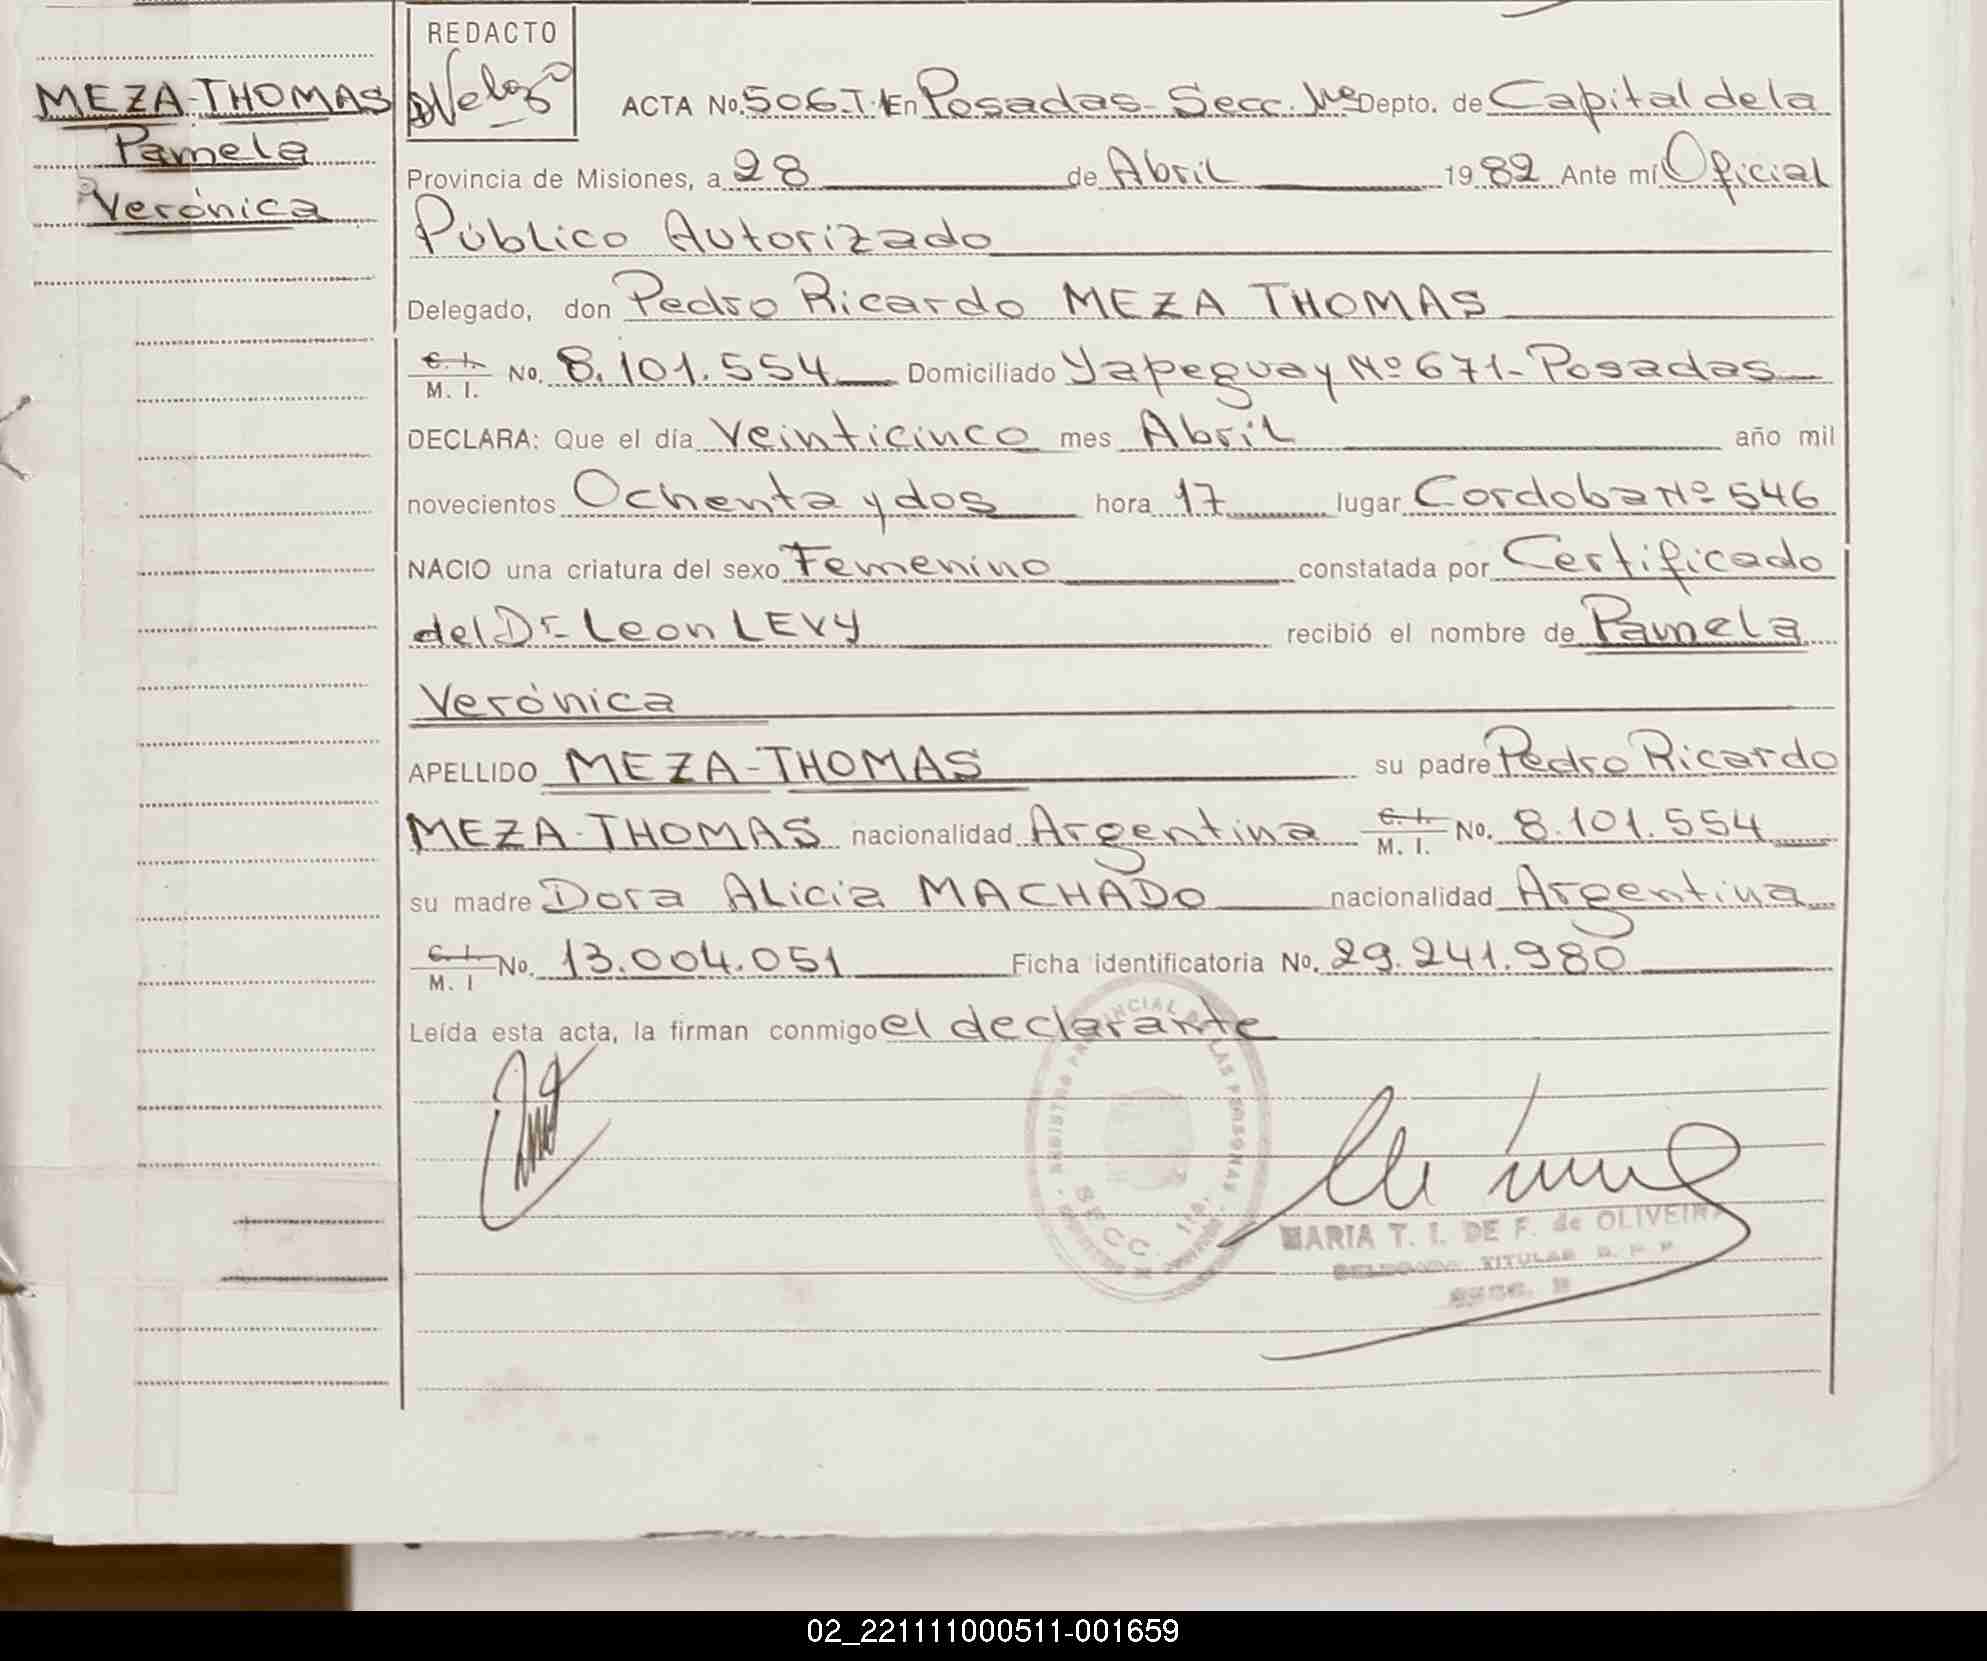 REDACTO
MEZA-THOMAS
Pamela
Verónica
ACTA No. 506-T.1 En Posadas-Secc. 1ª Depto. de Capital de la
Provincia de Misiones, a 28 de Abril 1982 Ante mí Oficial
Público Autorizado
Delegado, don Pedro Ricardo MEZA THOMAS
C. I. M. I. No. 8.101.554 Domiciliado Yapeguay Nº 671-Posadas
DECLARA: Que el día Veinticinco mes Abril año mil
novecientos Ochenta y dos hora 17 lugar Cordoba Nº 546
NACIO una criatura del sexo Femenino constatada por Certificado
del Dr. Leon LEVY recibió el nombre de Pamela
Verónica
APELLIDO MEZA-THOMAS su padre Pedro Ricardo
MEZA-THOMAS nacionalidad Argentina C. I. M. I. No. 8.101.554
su madre Dora Alicia MACHADO nacionalidad Argentina
C. I. M. I No. 13.004.051 Ficha identificatoria No. 29.241.980
Leída esta acta, la firman conmigo el declarante
REGISTRO PROVINCIAL DE LAS PERSONAS
SECC. 1ra.
MARIA T. I. DE F. de OLIVEIRA
TITULAR
02_221111000511-001659